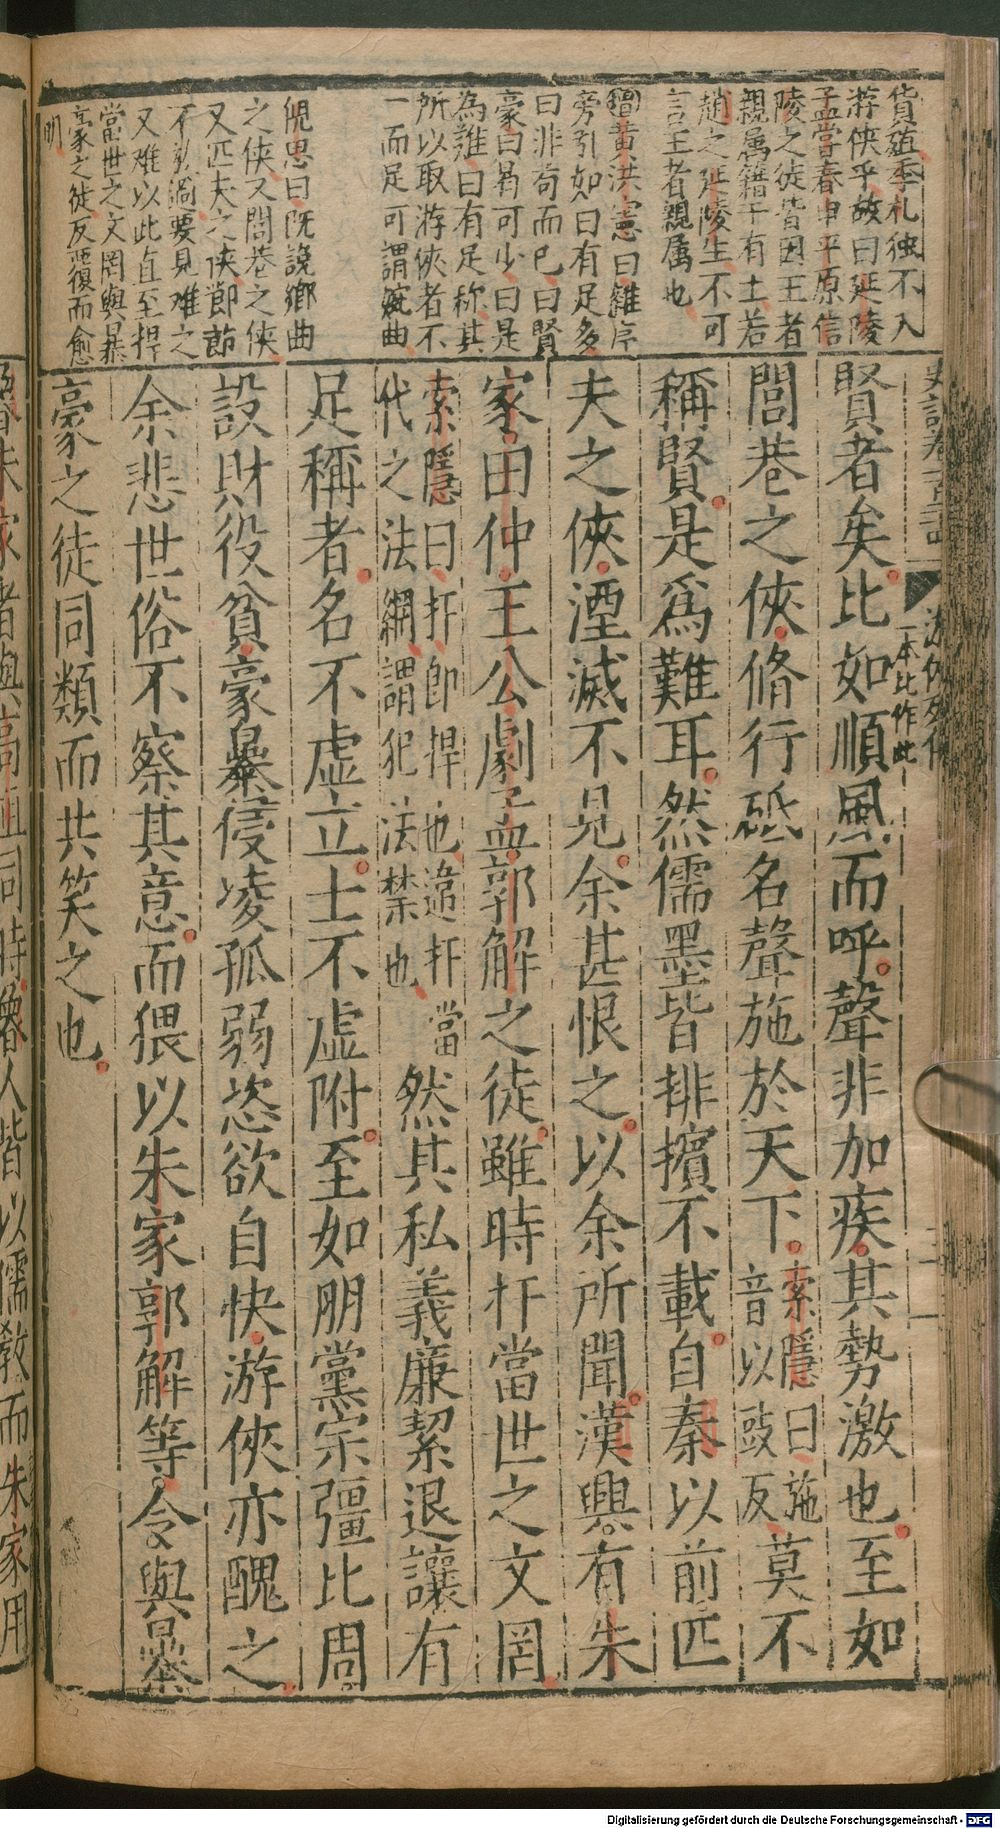 貨殖季札独不入
游侠乎故曰延陵
孟嘗春申平原信
陵之徒皆因王者
親属籍于有土若
趙之延陵生不可
言王者親属也
增黄洪憲曰雖序
旁引如曰有足多
曰非苟而已曰賢
豪曰曷可少曰是
為難曰有足称其
所以取游俠者不
一而足可謂婉曲
倪思曰既說鄉曲
之侠又閭巷之侠
又匹夫之侠節節
不放過要見难之
又难以此直至捍
當世之文罔與暴
豪之徒反覆而愈
明
賢者矣比如順風而呼聲非加疾其勢激也至如
閭巷之俠脩行砥名聲施於天下索隱曰施音以豉反莫不
稱賢是爲難耳然儒墨皆排擯不載自秦以前匹
夫之俠湮滅不見余甚恨之以余所聞漢興有朱
家田仲王公劇孟郭解之徒雖時扞當世之文罔
索隱曰扞即捍也違扞當代之法網謂犯法禁也然其私義廉絜退讓有
足稱者名不虚立士不虚附至如朋黨宗彊比周
設財役貧豪暴侵凌孤弱恣欲自快游俠亦醜之
余悲世俗不察其意而猥以朱家郭解等令與暴
豪之徒同類而共笑之也
游俠列傳
一本比作此
朱家者與高祖同時魯人皆以儒教而朱家用
Digitalisierung gefördert durch die Deutsche Forschungsgemeinschaft - DFG